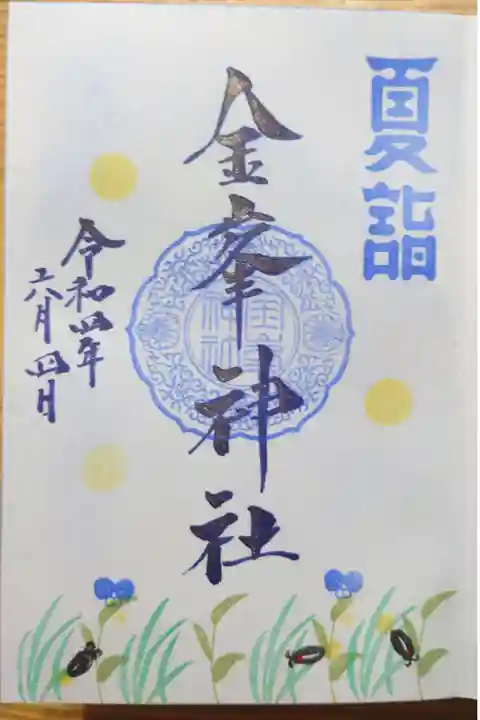 夏詣
金峯神社
金峯
神社
令和四年
六月四日